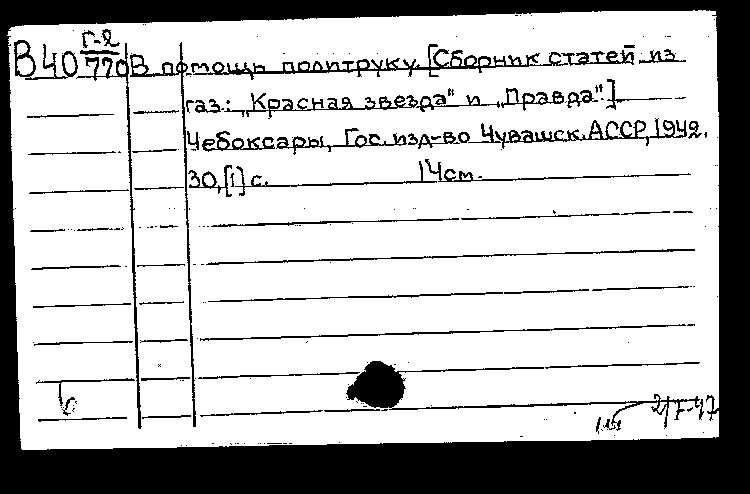 В40 Г-2/770 В помощь политруку. [Сборник статей из
газ: „Красная звезда" и „Правда".]
Чебоксары, Гос. изд-во Чувашск. АССР, 1942.
30,[1] с. 14см.